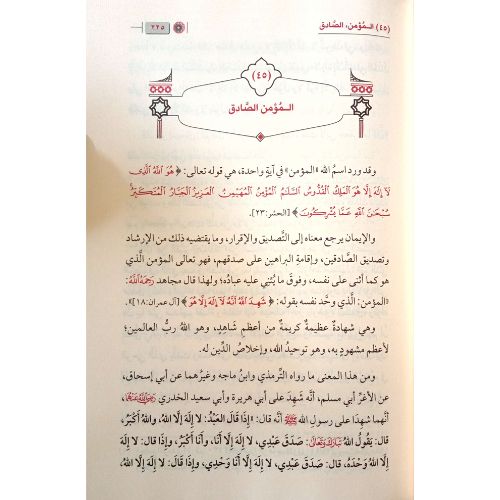 (٤٥) الـمُؤمن، الصَّادق
٢٢٥
(٤٥)
الـمُؤمن الصَّادق
وقد ورد اسمُ الله «المؤمن» في آيةٍ واحدة، هي قوله تعالى: ﴿هُوَ ٱللَّهُ ٱلَّذِى
لَآ إِلَٰهَ إِلَّا هُوَ ٱلْمَلِكُ ٱلْقُدُّوسُ ٱلسَّلَٰمُ ٱلْمُؤْمِنُ ٱلْمُهَيْمِنُ ٱلْعَزِيزُ ٱلْجَبَّارُ ٱلْمُتَكَبِّرُ
سُبْحَٰنَ ٱللَّهِ عَمَّا يُشْرِكُونَ﴾ [الحشر:٢٣].
والإيمان يرجع معناه إلى التَّصديق والإقرار، وما يقتضيه ذلك من الإرشاد
وتصديق الصَّادقين، وإقامةِ البراهين على صدقهم، فهو تعالى المؤمن الَّذي
هو كما أثنى على نفسه، وفوقَ ما يُثنِي عليه عبادُه؛ ولهذا قال مجاهد رَحِمَهُ ٱللَّهُ:
«المؤمن: الَّذي وحَّد نفسه بقوله: ﴿شَهِدَ ٱللَّهُ أَنَّهُۥ لَآ إِلَٰهَ إِلَّا هُوَ﴾ [آل عمران:١٨]».
وهي شهادةٌ عظيمةٌ كريمةٌ من أعظمِ شَاهِدٍ، وهو اللهُ ربُّ العالمين؛
لأعظم مشهودٍ به، وهو توحيدُ الله، وإخلاصُ الدِّين له.
ومن هذا المعنى ما رواه التِّرمذي وابنُ ماجه وغيرُهما عن أبي إسحاق،
عن الأغرِّ أبي مسلم، أنَّه شَهِدَ على أبي هريرة وأبي سعيد الخدري رَضِيَ ٱللَّهُ عَنْهُمَا،
أنَّهما شهدَا على رسولِ الله ﷺ أنَّه قال: «إِذَا قَالَ العَبْدُ: لا إِلَهَ إِلَّا اللهُ، واللهُ أَكْبَرُ،
قال: يَقُولُ اللهُ تَبَارَكَ وَتَعَالَى: صَدَقَ عَبْدِي، لا إِلَهَ إِلَّا أَنَا، وأَنَا أَكْبَرُ، وإِذَا قال: لا إِلَهَ
إِلَّا اللهُ وَحْدَهُ، قال: صَدَقَ عَبْدِي، لا إِلَهَ إِلَّا أَنَا وَحْدِي، وإِذَا قَالَ: لا إِلَهَ إِلَّا اللهُ،